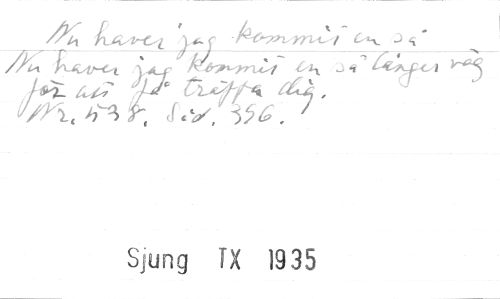 Nu haver jag kommit en så
Nu haver jag kommit en så långer väg
för att få träffa dig.
Nr. 538. Sid. 356.
Sjung TX 1935